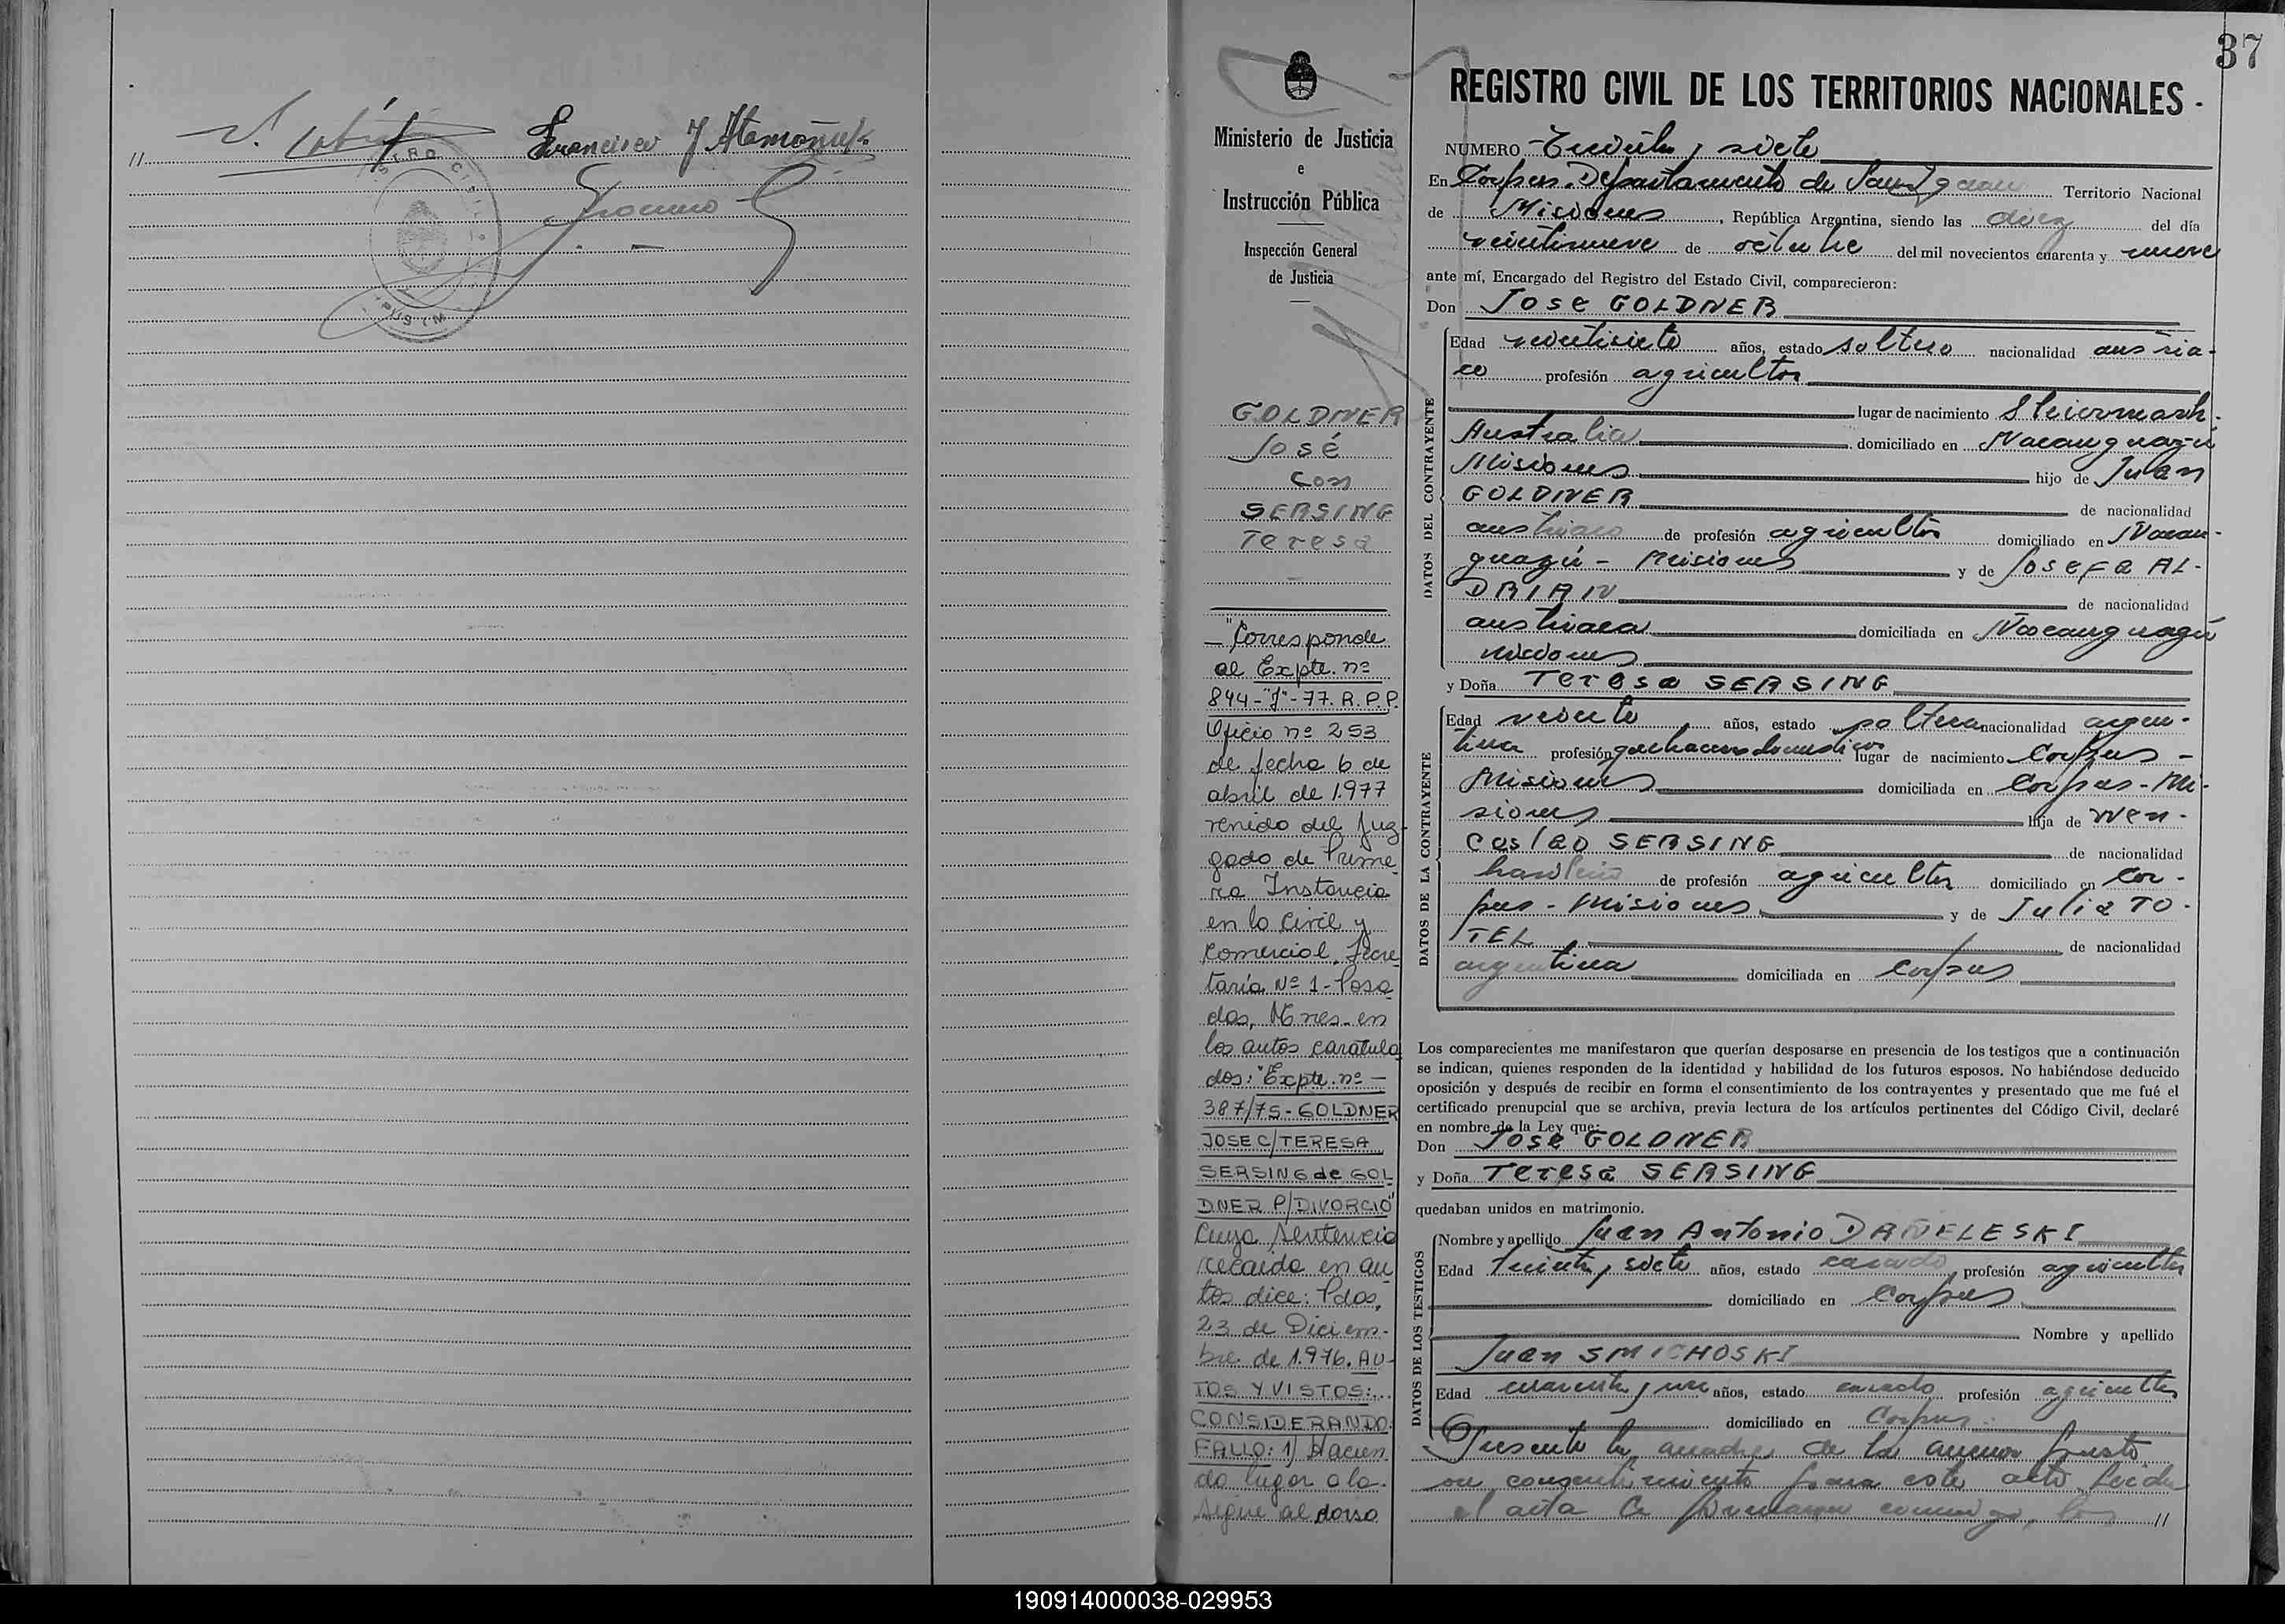 Francisco J
REGISTRO CIVIL
MISIONES
37
Ministerio de Justicia
e
Instrucción Pública
Inspección General
de Justicia
GOLDNER
José
con
SERSING
Teresa
—"Corresponde
al Expte. nº
844-"J"-77. R.P.P.
Oficio nº 253
de fecha 6 de
abril de 1977
venido del Juz-
gado de Prime
ra Instancia
en lo Civil y
Comercial, Secre
taría Nº 1- Posa
das, Mnes. en
los autos caratula
dos: "Expte. nº —
387/75- GOLDNER
JOSE C/TERESA
SERSING de GOL
DNER P/DIVORCIO"
Cuya sentencia
recaída en au
tos dice: Pdas,
23 de Diciem-
bre de 1.976. AU-
TOS Y VISTOS:...
CONSIDERANDO:
FALLO: 1) Hacien
do lugar a la
Sigue al dorso
REGISTRO CIVIL DE LOS TERRITORIOS NACIONALES -
NÚMERO Treinta y siete
En Corpus. Departamento de San Ignacio Territorio Nacional
de Misiones, República Argentina, siendo las diez del día
veintinueve de octubre del mil novecientos cuarenta y nueve
ante mí, Encargado del Registro del Estado Civil, comparecieron:
Don Jose GOLDNER
DATOS DEL CONTRAYENTE
Edad veintisiete años, estado soltero nacionalidad austria-
co profesión agricultor
lugar de nacimiento Steiermark-
Australia domiciliado en Ñacanguazú
Misiones hijo de Juan
GOLDNER de nacionalidad
austriaco de profesión agricultor domiciliado en Ñacan-
guazú - Misiones y de Josefa AL-
DRIAN de nacionalidad
austriaca domiciliada en Ñacanguazú
Misiones
y Doña Teresa SERSING
DATOS DE LA CONTRAYENTE
Edad veinte años, estado soltera nacionalidad argen-
tina profesión quehaceres domesticos lugar de nacimiento Corpus -
Misiones domiciliada en Corpus - Mi-
siones hija de Wen-
ceslao SERSING de nacionalidad
brasileño de profesión agricultor domiciliado en Cor-
pus - Misiones y de Julia TO-
TEL de nacionalidad
argentina domiciliada en Corpus
Los comparecientes me manifestaron que querían desposarse en presencia de los testigos que a continuación
se indican, quienes responden de la identidad y habilidad de los futuros esposos. No habiéndose deducido
oposición y después de recibir en forma el consentimiento de los contrayentes y presentado que me fué el
certificado prenupcial que se archiva, previa lectura de los artículos pertinentes del Código Civil, declaré
en nombre de la Ley que:
Don Jose GOLDNER
y Doña Teresa SERSING
quedaban unidos en matrimonio.
DATOS DE LOS TESTIGOS
Nombre y apellido Juan Antonio DAÑELESKI
Edad treinta y siete años, estado casado, profesión agricultor
domiciliado en Corpus
Nombre y apellido
Juan SMICHOSKI
Edad cuarenta y un años, estado casado profesión agricultor
domiciliado en Corpus.
Presente la madre de la menor presto
su consentimiento para este acto. Leída
el acta la firmaron conmigo, los //
190914000038-029953